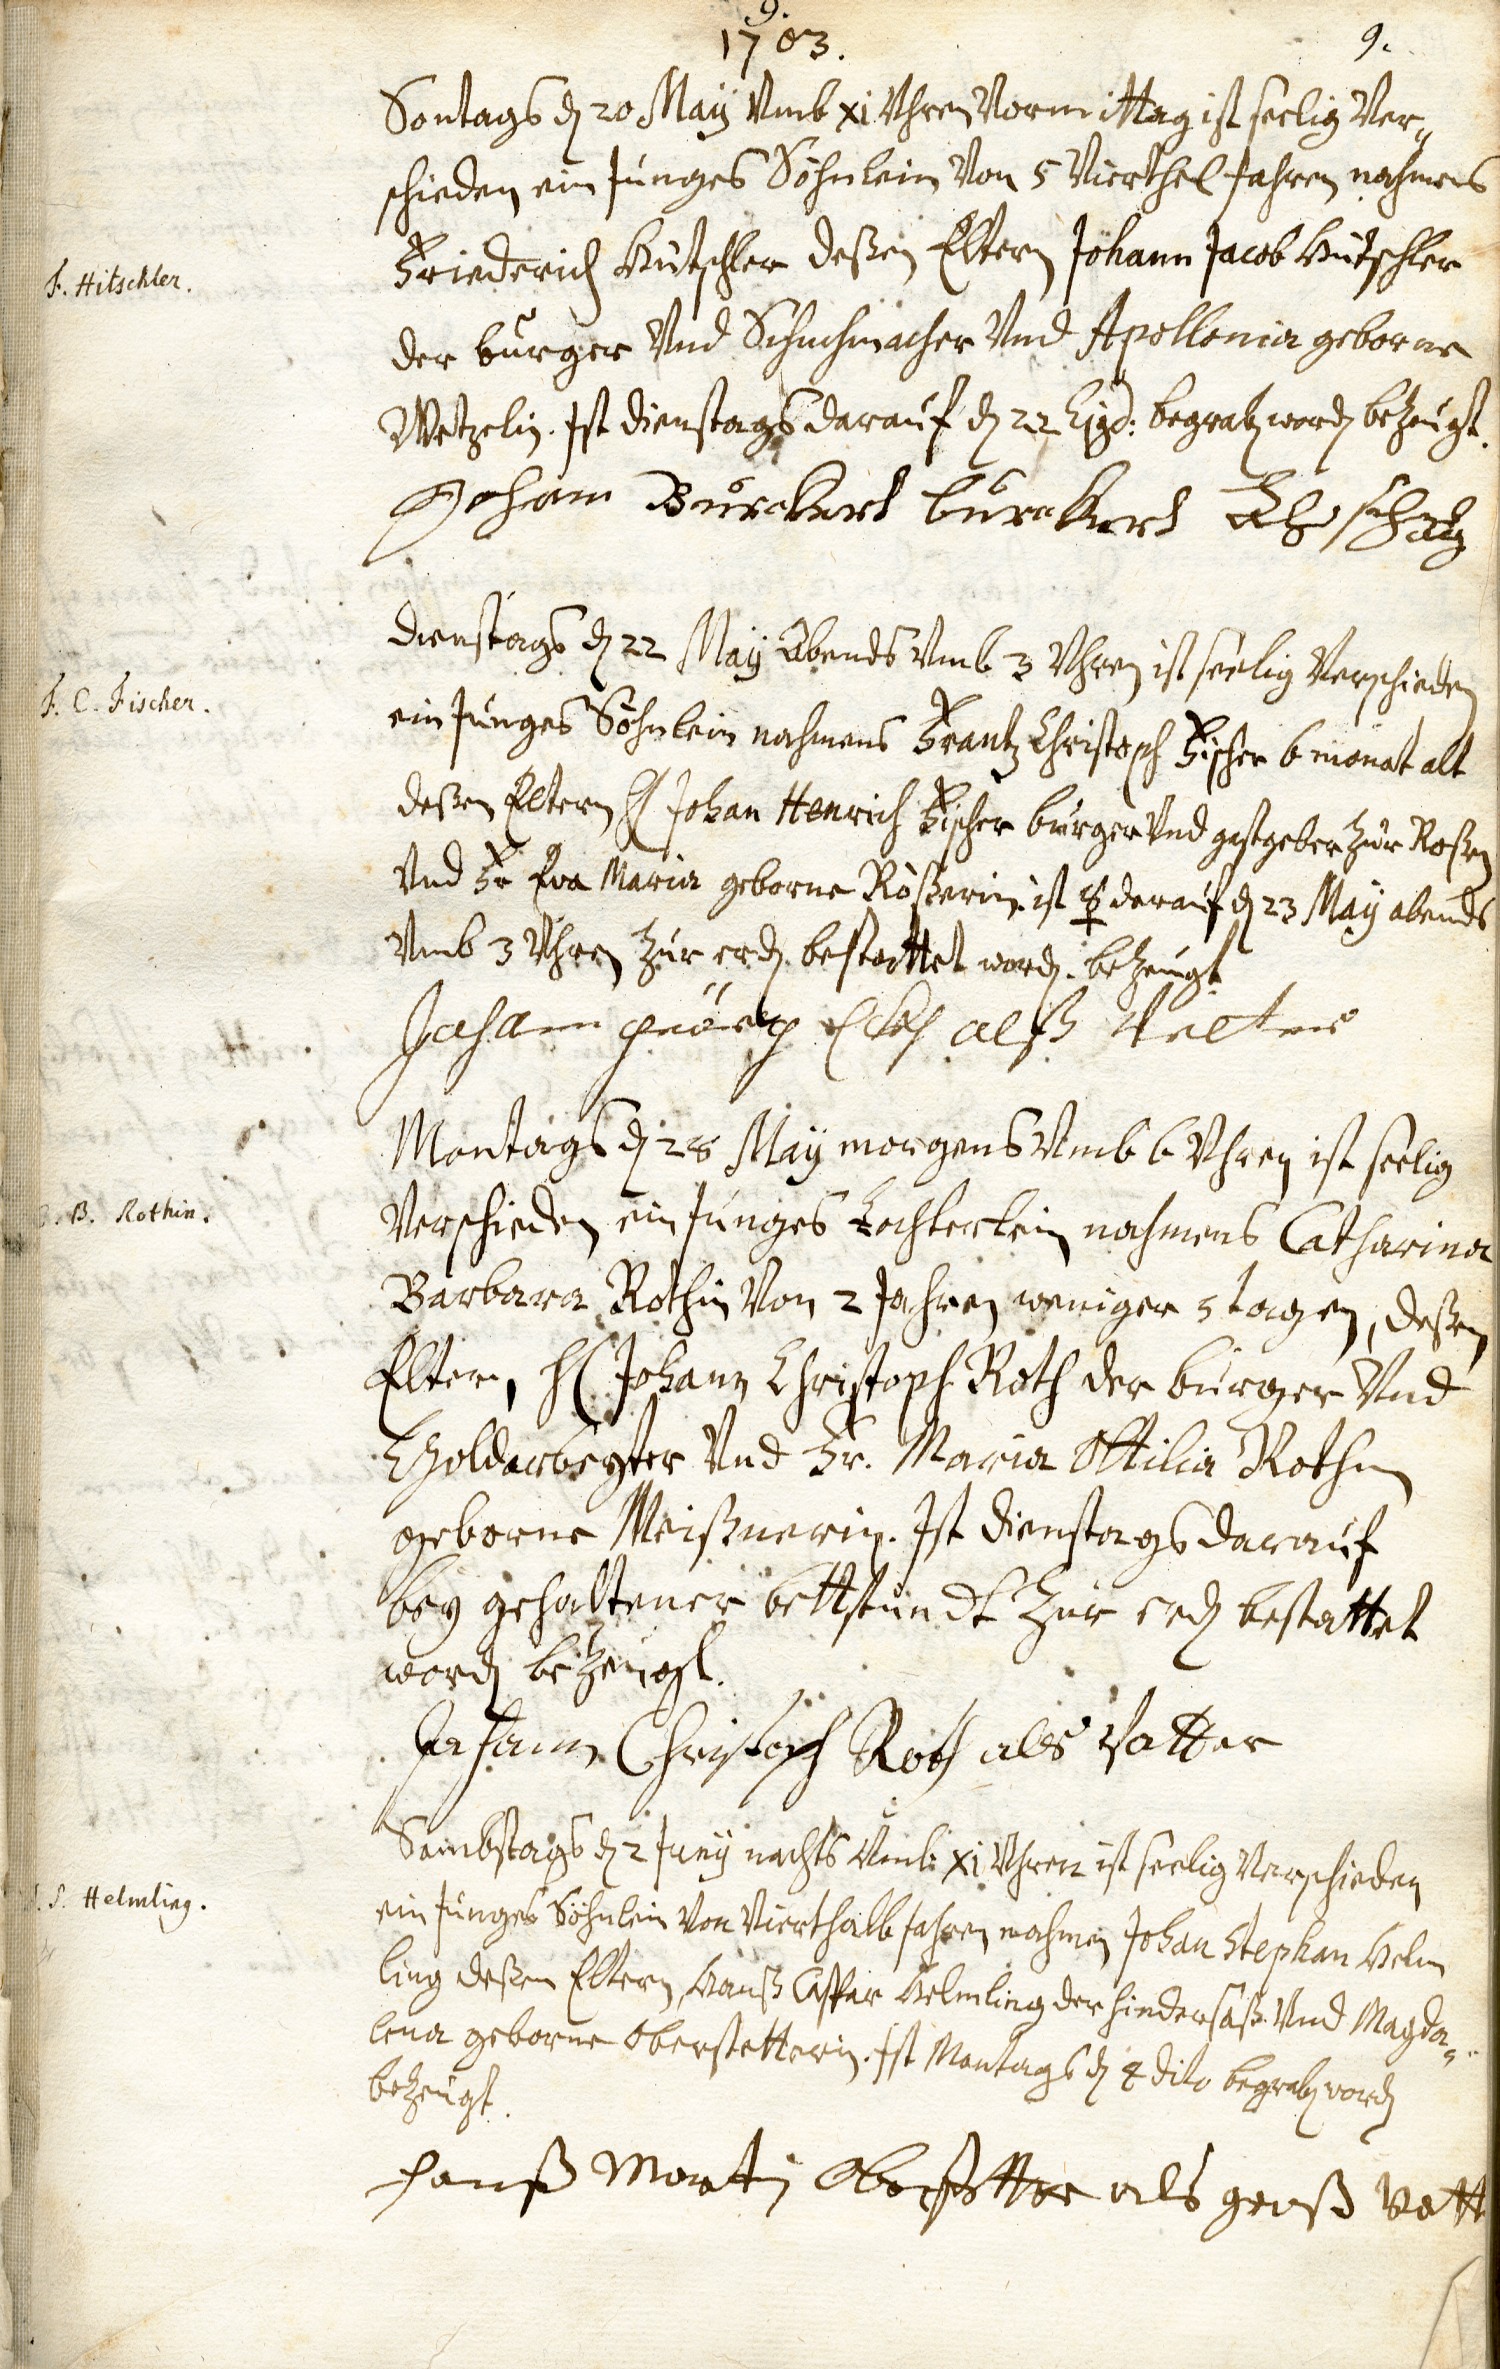 9.
1703.
9.
Sontags d 20 May Vmb xi Vhren Vormittag ist seelig Ver„
schieden ein Junges Söhnlein Von 5 Vierthel Jahren nahmens
F. Hitschler.
Friederich Hütschler deßen Eltern Johann Jacob Hütschler
der burger Vnd Schuhmacher Vnd Apollonia geborne
Wetzelin. Ist dienstags darauf d 22 begrab word bezeugt.
Johann Burckhart burckhart
dienstags d 22 May Abends Vmb 3 Vhren ist seelig Verschieden
F. C. Fischer.
ein Junges Söhnlein nahmens Frantz Christoph Fischer 6 monat alt
deßen Eltern H Johan Henrich Fischer burger Vnd gastgeber Zur Roßen
Vnd Fr Eva Maria geborne Rößerin, ist ☿ darauf d 23 May abends
Vmb 3 Vhren Zur erd bestattet word. bezeugt
Johann alß
Montags d 28 May morgens Vmb 6 Vhren ist seelig
B. Rothin.
Verschieden ein Junges Tochterlein nahmens Catharina
Barbara Rothin Von 2 Jahren weniger 3 tagen, deßen
Eltern, H Johann Christoph Roth der burger Vnd
Goldarbeyter Vnd Fr. Maria Ottilia Rothin
geborne Meißnerin. Ist dienstags darauf
bey gehaltener bettstundt Zur erd bestattet
word bezeugt.
Johann Christoph Roth als Vatter
Sambstags d 2 Juny nachts Vmb xi Vhren ist seelig Verschieden
S. Helmling.
ein Junges Söhnlein Von Vierthalb Jahren nahmen Johan Stephan Helm
ling deßen Eltern, Hanß Caspar Helmling der hindersaß Vnd Magda„
lena geborne Oberstetterin. Ist Montags d 4 dito begrab word
bezeugt.
Hanß Martin Oberstetter als groß Vatt